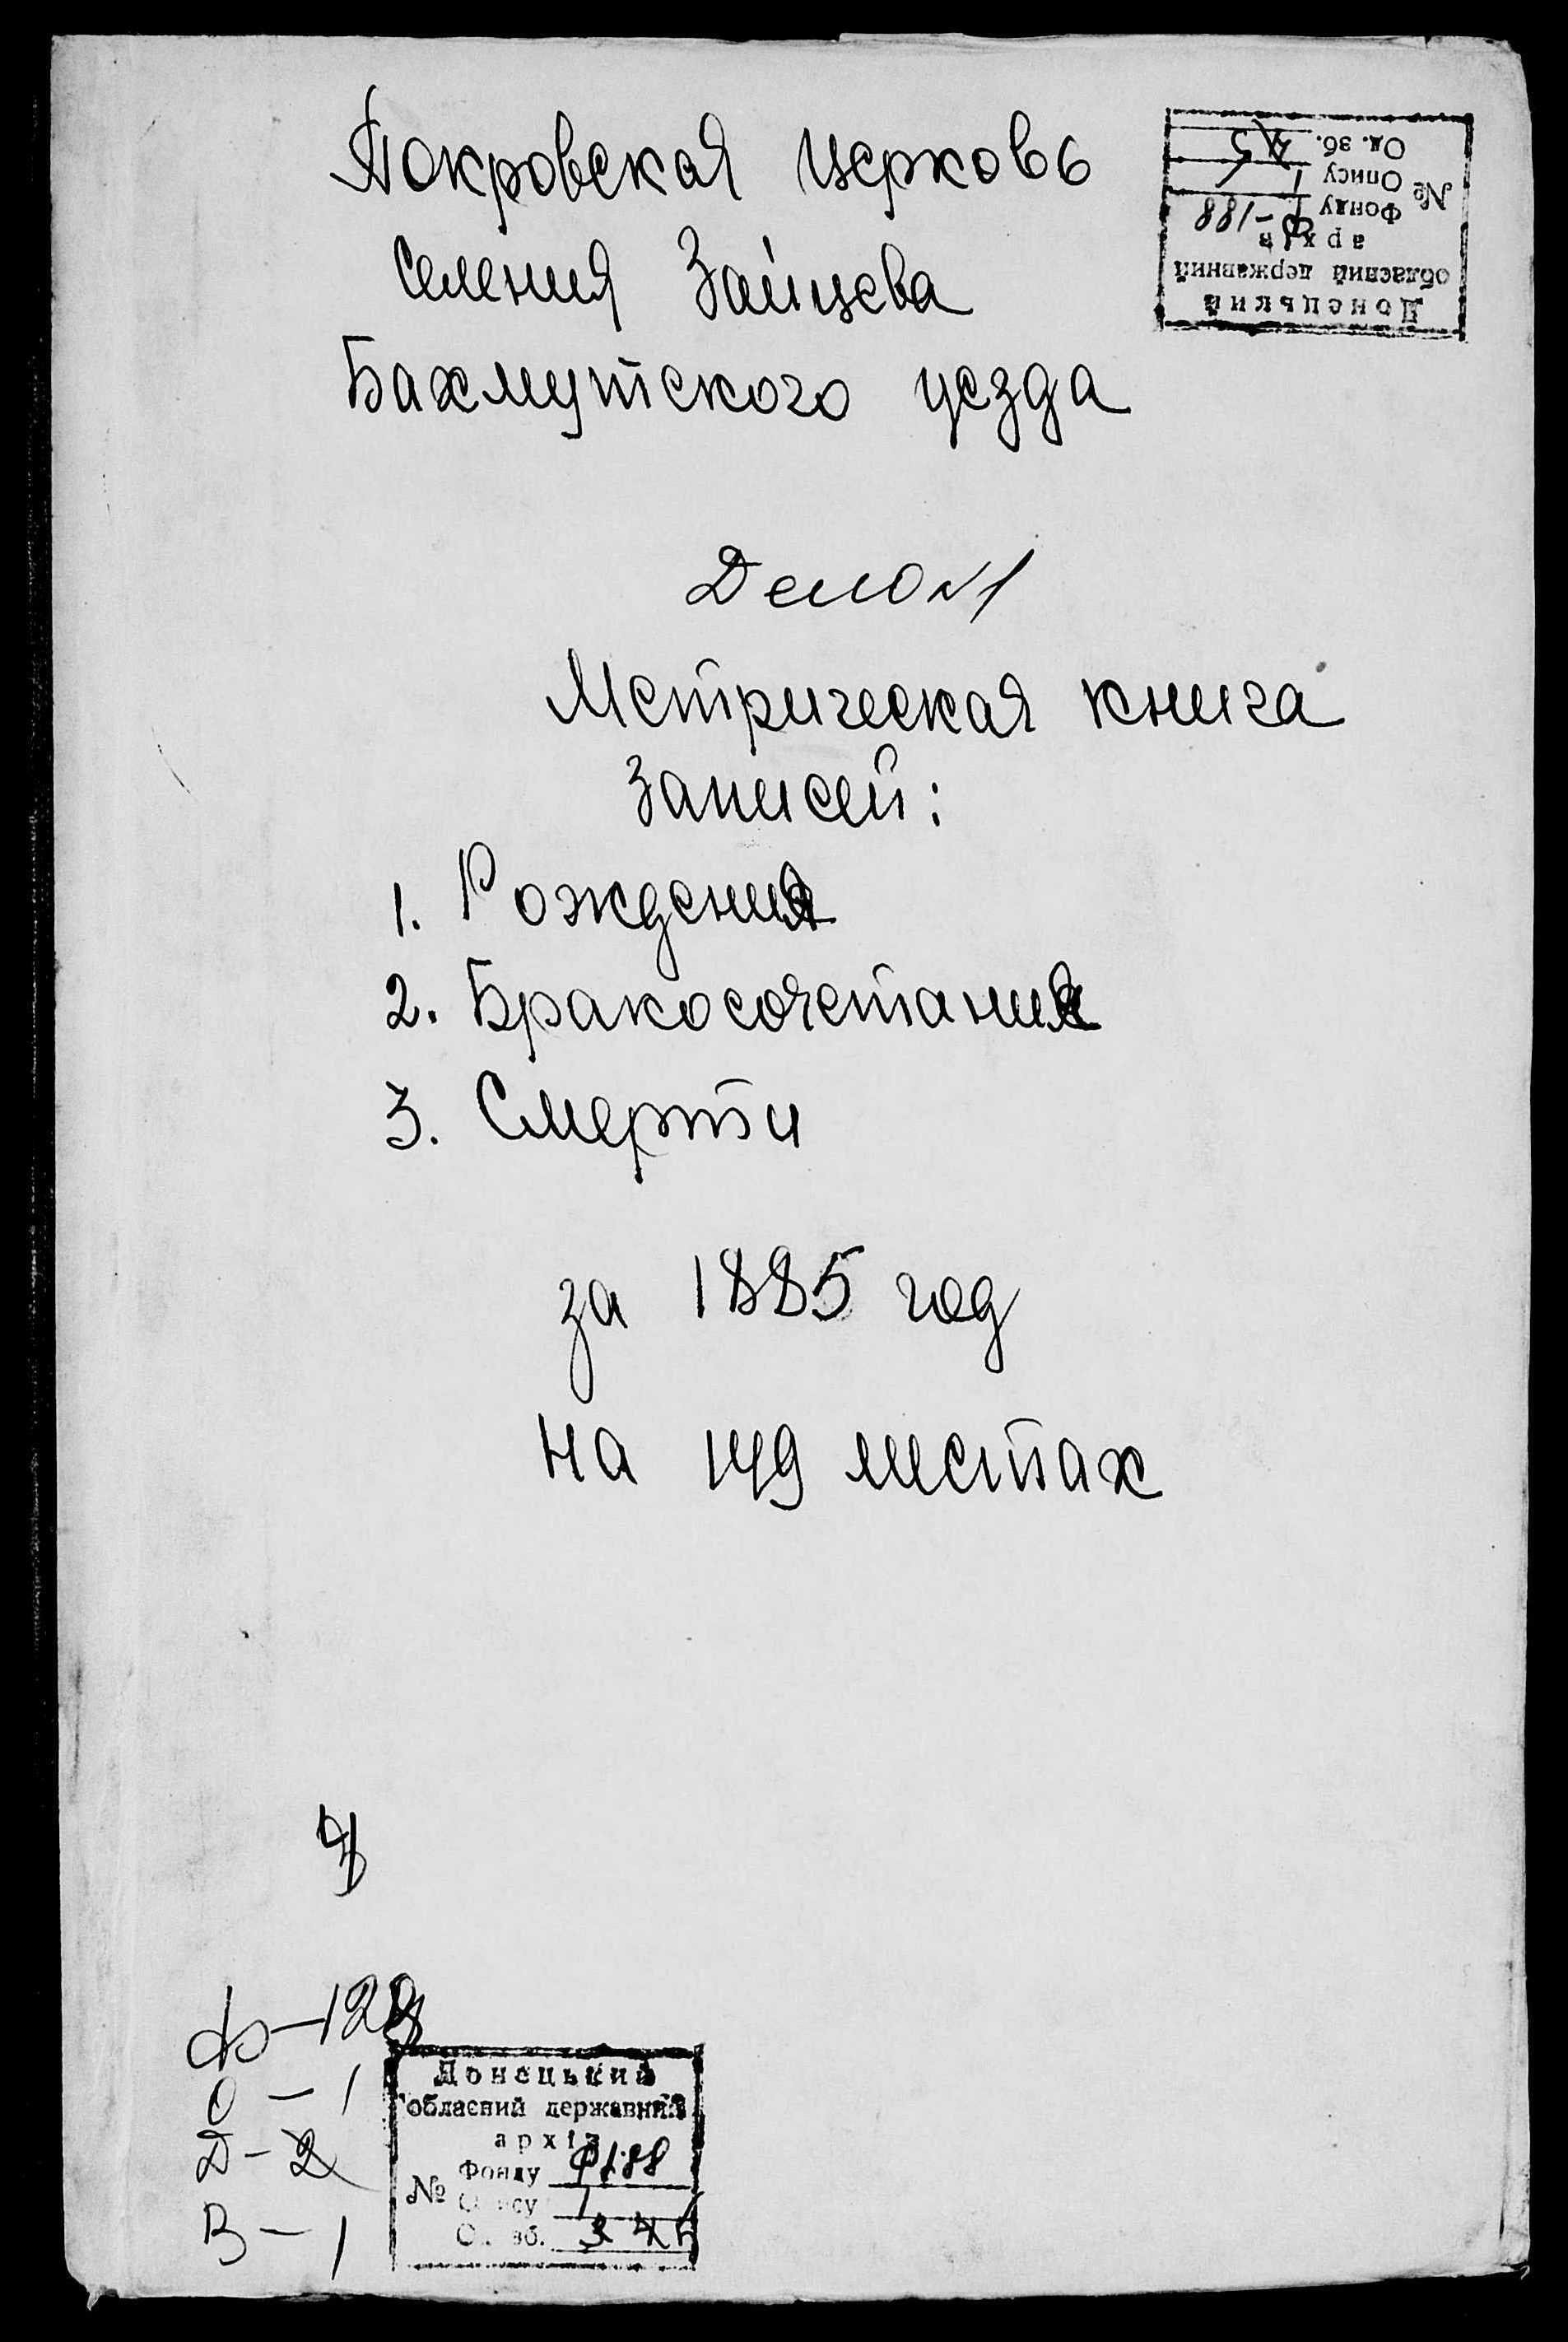 Покровская церковь
селения Зайцева
Бахмутского уезда
Донецький
обласний державний
архів
№ Фонду Ф-188
Опису 1
Од. зб.
Дело №1
Метрическая книга
записей:
1. Рождения
2. Бракосочетания
3. Смерти
за 1885 год
на 149 листах
О – 1
Д – 2
В – 1
Донецький
обласний державний
архів
№ Фонду Ф188
Опису 1
Од. зб.